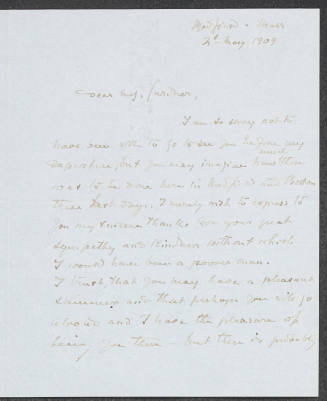 Medford - Mass
2d May 1909
Dear Mrs. Gardner,
I am so sorry not to
have been able to go to see you before my
departure, but you may imagine how
much there
was to be done here in Medford and Boston
these last days. I merely wish to express to
you my sincere thanks for your great
sympathy and kindness without which
I would have been a poorer man.
I trust, that you may have a pleasant
summer and that perhaps you will go
abroad and I have the pleasure of
seeing you there - but there is probably